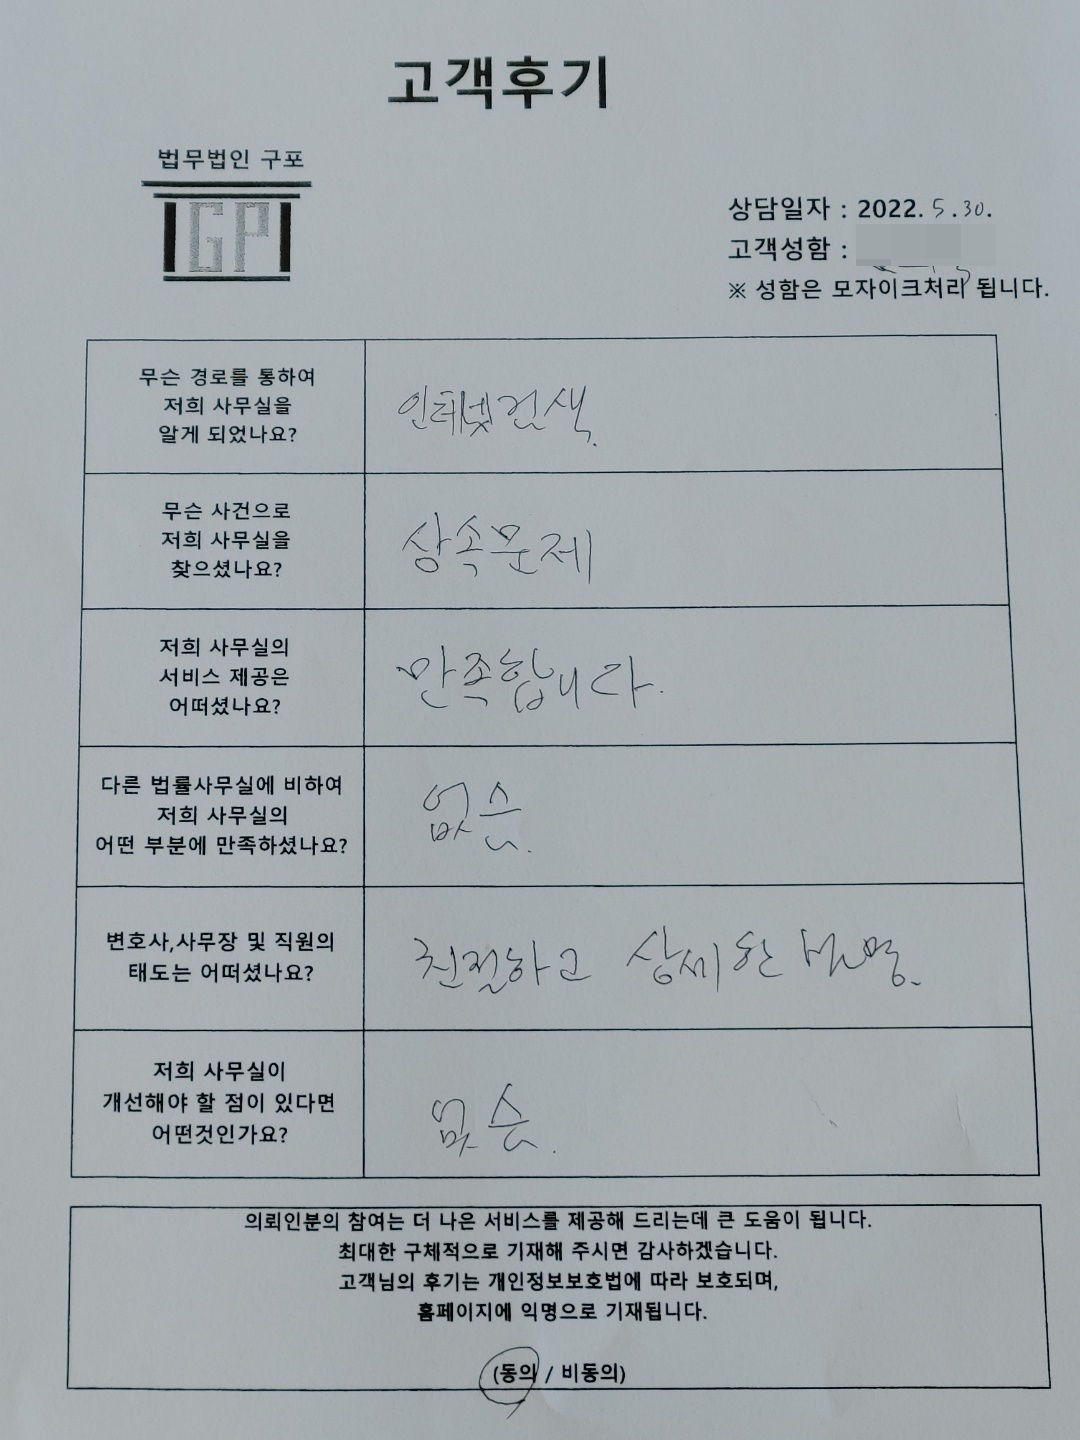 고객후기
법무법인 구포
GP
상담일자 : 2022. 5.30.
고객성함 :
※ 성함은 모자이크처리 됩니다.
무슨 경로를 통하여
저희 사무실을
알게 되었나요?
인터넷검색.
무슨 사건으로
저희 사무실을
찾으셨나요?
상속문제
저희 사무실의
서비스 제공은
어떠셨나요?
만족합니다.
다른 법률사무실에 비하여
저희 사무실의
어떤 부분에 만족하셨나요?
없슨.
변호사,사무장 및 직원의
태도는 어떠셨나요?
친절하고 상세한 설명.
저희 사무실이
개선해야 할 점이 있다면
어떤것인가요?
없슨.
의뢰인분의 참여는 더 나은 서비스를 제공해 드리는데 큰 도움이 됩니다.
최대한 구체적으로 기재해 주시면 감사하겠습니다.
고객님의 후기는 개인정보보호법에 따라 보호되며,
홈페이지에 익명으로 기재됩니다.
(동의 / 비동의)